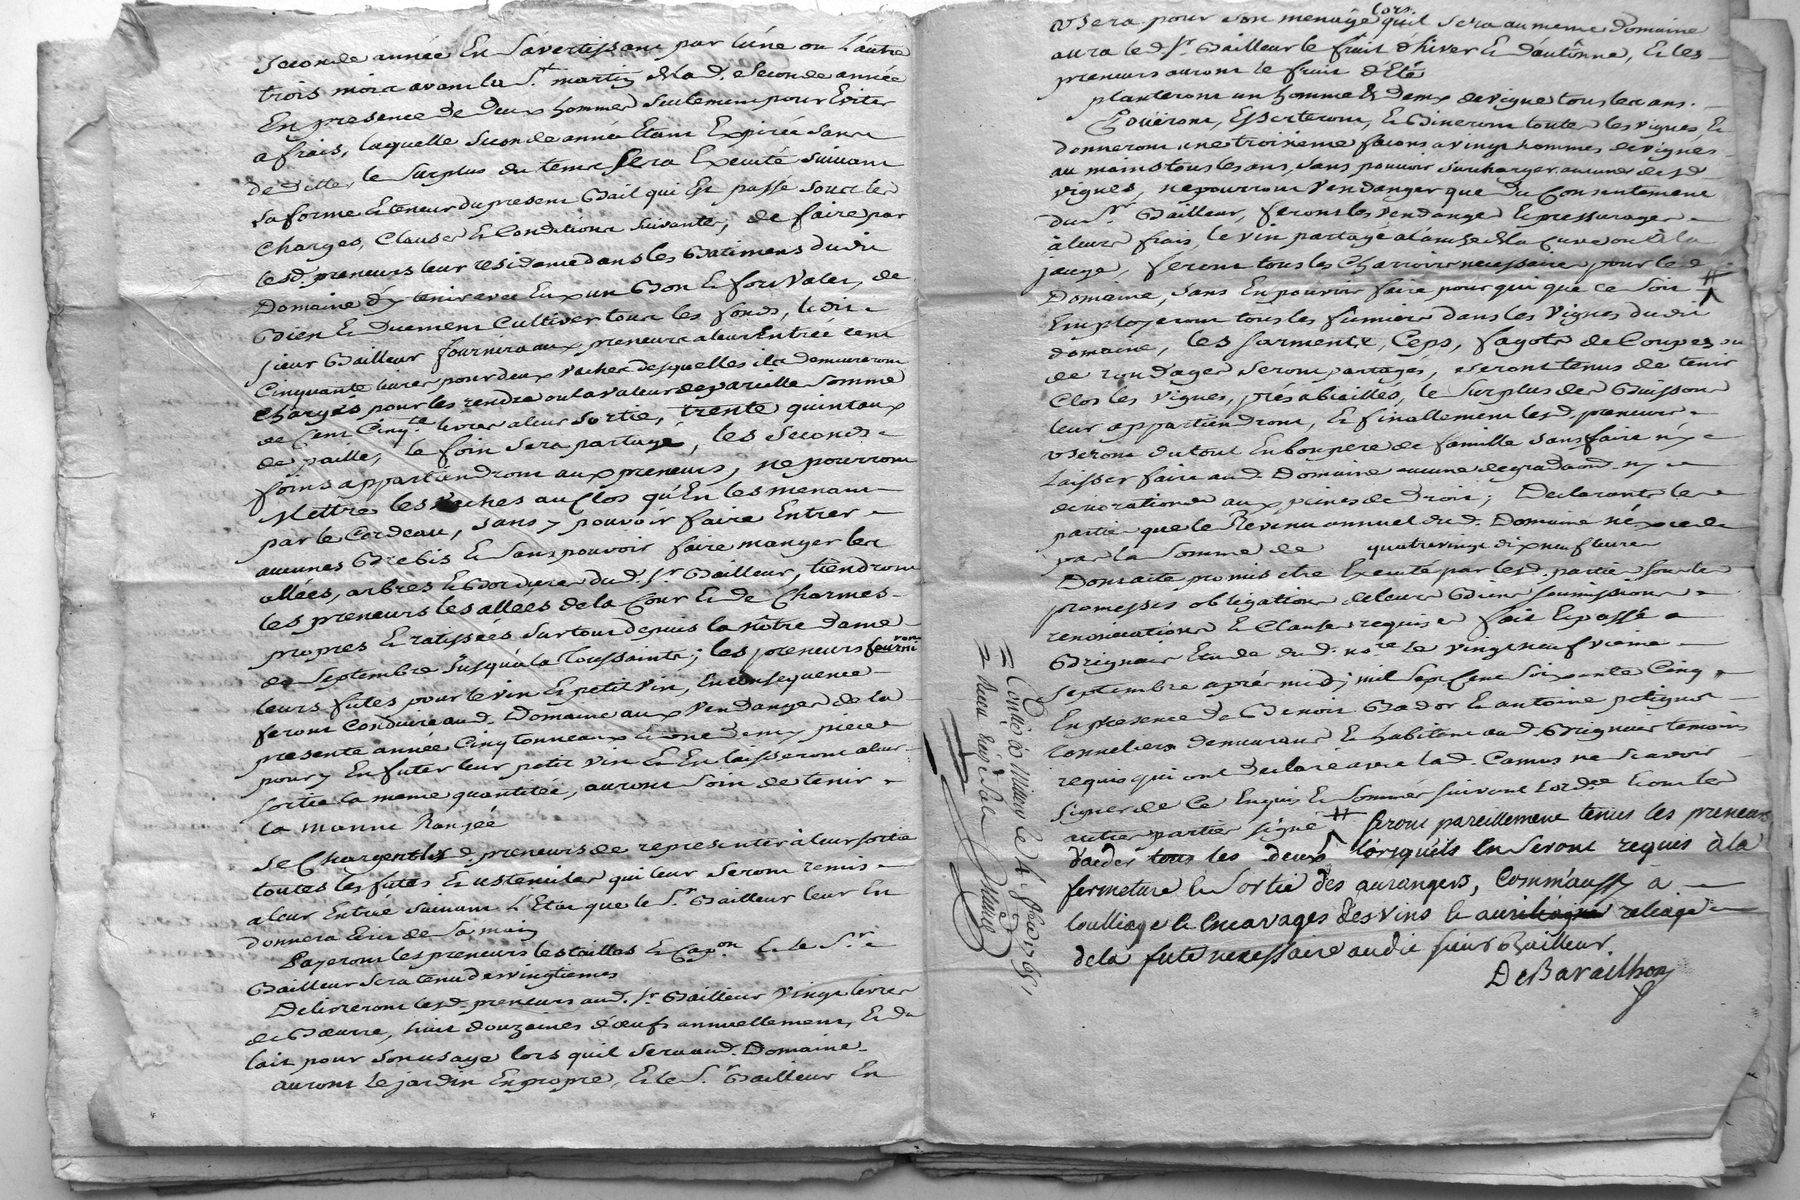 seconde année En Savertissant par lune ou L'autre
trois mois avant la St. martin de lad. e Seconde année
En presence de deux hommes seulement pour Eviter
a frais, laquelle seconde année Etant Expirée sans
dedittes, le Surplus du tems Sera Executé suivant
la forme & teneur du present Bail qui Est passé sous les
Charges, Clauses & Conditions suivantes, de faire par
lesd. preneurs leur residence dans les Batimens dudit
Domaine d'y tenir avec Eux un Bon & fort Valet, de
Bien & Duement Cultiver tous les fonds, ledit
sieur Bailleur fournira aux preneurs a leur Entrée cent
Cinquante livres pour deux vaches desquelles ils demeureront
Chargés pour les rendre ou la valeur de pareille somme
de Cent Cinqte. livres a leur sortie, trente quintaux
de paille, le foin sera partagé, les seconds
foins appartiendront aux preneurs, ne pourront
Mettre les vaches au Clos qu'En les menant
par le Cordeau, sans y pouvoir faire Entrer
aucunes Brebis & sans pouvoir faire manger les
allées, arbres & Bordures dud. Sr. Bailleur, tiendront
les preneurs les allées de la Cour & de Charmes
propres & ratissées surtout depuis la nôtre dame
de Septembre jusqu'a la Toussaints; les preneurs fourniront
leurs futes pour le vin & petit vin, En consequence
feront Conduire aud. Domaine aux Vendanges de la
presente année Cinq tonneaux & une demy piece
pour y En futer leur petit vin & En laisseront a leur
sortie la meme quantitée, auront soin de tenir
la manne Rangée
Se Chargent lesd. preneurs de representer à leur sortie
toutes les futes & ustenciles qui leur seront remis
a leur Entrée suivant L'Etat que le Sr. Bailleur leur En
donnera Ecrit de sa main
Payeront les preneurs les tailles & Capon. & le Sr.
Bailleur sera tenu des vingtiemes
Delivreront lesd. preneurs aud. Sr. Bailleur Vingt livres
de Boeurre, huit douzaines d'oeufs annuellement, & du
lait pour son usage lors quil sera aud. Domaine
auront le jardin En propre, & le Sr. Bailleur En
usera pour son menage lors quil sera au meme Domaine
aura led. Sr. Bailleur le fruit d'hiver & d'autonne, & les
preneurs auront le fruit d'Eté
planteront un homme & demy de vigne tous les ans.
Fouèront, Esserteront, & Bineront toutes les vignes, &
donneront une troisieme façons a vingt hommes de vignes
au moins tous les ans, sans pouvoir surcharger aucunes desd.
vignes, ne pourront Vendanger que du Consentement
du Sr. Bailleur, ferons les vendanges & pressurages
à leurs frais, le vin partagé a l'anche de la Cuve ou à la
jauge, feront tous les Charrois necessaires pour led.
Domaine, sans En pouvoir faire pour qui que ce soit
Employeront tous les fumiers dans les Vignes dudit
domaine, les Sarments, Ceps, fagots de Coupes ou
de tondages seront partagés, seront tenus de tenir
Clos les vignes, prés a biaillés, le surplus des Buissons
leur appartiendront, & finallement lesd. preneurs
useront du tout En bon pere de famille sans faire n'y
Laisser faire aud. Domaine aucune degradaon. ny
divorations aux peines de droit; Declarants les
partie que le Revenu annuel dud. Domaine n'éxcede
par la Somme de quatrevingt dix neuf livres
Dont acte promis être Executé par lesd. partie sous les
promesses obligations de leurs Biens soumissions
renonciations & Clauses requises fait & passé a
Brignais Etude dud. nore. le vingt neufvieme
Septembre aprés midy mil sept cent soixante Cinq
En presence de Benoit Bador & antoine petignot
tonneliers demeurans & habitens aud. Brignais temoins
requis qui ont declaré avec lad. Camus ne scavoir
signer de ce Enquis & Sommés suivant l'ord.ce & ont les
autres parties signé # seront pareillement tenus les preneurs
d'aeder tous les deux lorsquils En seront requis à la
fermeture & sortie des aurangers, comm'aussy a
loulliage & encavages des vins & reliage
de la fute necessaire audit sieur Bailleur.
DeBavailhon
= Conllé à Millery le 14 8bre 1765,
= Reçu